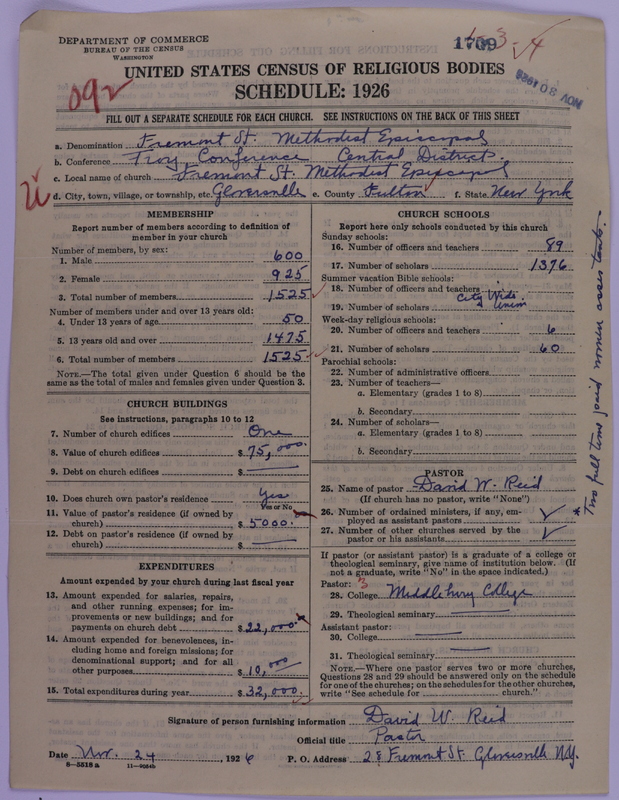 DEPARTMENT OF COMMERCE
BUREAU OF THE CENSUS
WASHINGTON
1709
NOV 30 1926
092
UNITED STATES CENSUS OF RELIGIOUS BODIES
SCHEDULE: 1926
FILL OUT A SEPARATE SCHEDULE FOR EACH CHURCH. SEE INSTRUCTIONS ON THE BACK OF THIS SHEET
a. Denomination Fremont St. Methodist Episcopal
b. Conference Troy Conference Central District.
c. Local name of church Fremont St. Methodist Episcopal
d. City, town, village, or township, etc. Gloversville e. County Fulton f. State New York
MEMBERSHIP
Report number of members according to definition of
member in your church
Number of members, by sex:
1. Male 600
2. Female 925
3. Total number of members 1525
Number of members under and over 13 years old:
4. Under 13 years of age 50
5. 13 years old and over 1475
6. Total number of members 1525
NOTE.—The total given under Question 6 should be
the same as the total of males and females given under Question 3.
CHURCH BUILDINGS
See instructions, paragraphs 10 to 12
7. Number of church edifices One
8. Value of church edifices $ 75,000.
9. Debt on church edifices $
10. Does church own pastor's residence Yes
Yes or No
11. Value of pastor's residence (if owned by
church) $ 5000.
12. Debt on pastor's residence (if owned by
church) $
EXPENDITURES
Amount expended by your church during last fiscal year
13. Amount expended for salaries, repairs,
and other running expenses; for im-
provements or new buildings; and for
payments on church debt $ 22,000
14. Amount expended for benevolences, in-
cluding home and foreign missions; for
denominational support; and for all
other purposes $ 10,000
15. Total expenditures during year $ 32,000.
CHURCH SCHOOLS
Report here only schools conducted by this church
Sunday schools:
16. Number of officers and teachers 89
17. Number of scholars 1376
Summer vacation Bible schools:
18. Number of officers and teachers
City Wide
19. Number of scholars & Union
Week-day religious schools:
20. Number of officers and teachers 6
21. Number of scholars 60
Parochial schools:
22. Number of administrative officers
23. Number of teachers—
a. Elementary (grades 1 to 8)
b. Secondary
24. Number of scholars—
a. Elementary (grades 1 to 8)
b. Secondary
PASTOR
25. Name of pastor David W. Reid
(If church has no pastor, write "None")
26. Number of ordained ministers, if any, em-
ployed as assistant pastors
27. Number of other churches served by the
pastor or his assistants
If pastor (or assistant pastor) is a graduate of a college or
theological seminary, give name of institution below. (If
not a graduate, write "No" in the space indicated.)
Pastor: 3
28. College Middlebury College
29. Theological seminary
Assistant pastor:
30. College
31. Theological seminary
NOTE.—Where one pastor serves two or more churches,
Questions 28 and 29 should be answered only on the schedule
for one of the churches; on the schedules for the other churches,
write "See schedule for church."
* Two full time paid women assistants
Signature of person furnishing information David W. Reid
Official title Pastor
Date Nov. 24, 1926 P. O. Address 28 Fremont St. Gloversville N.Y.
8—5518 a